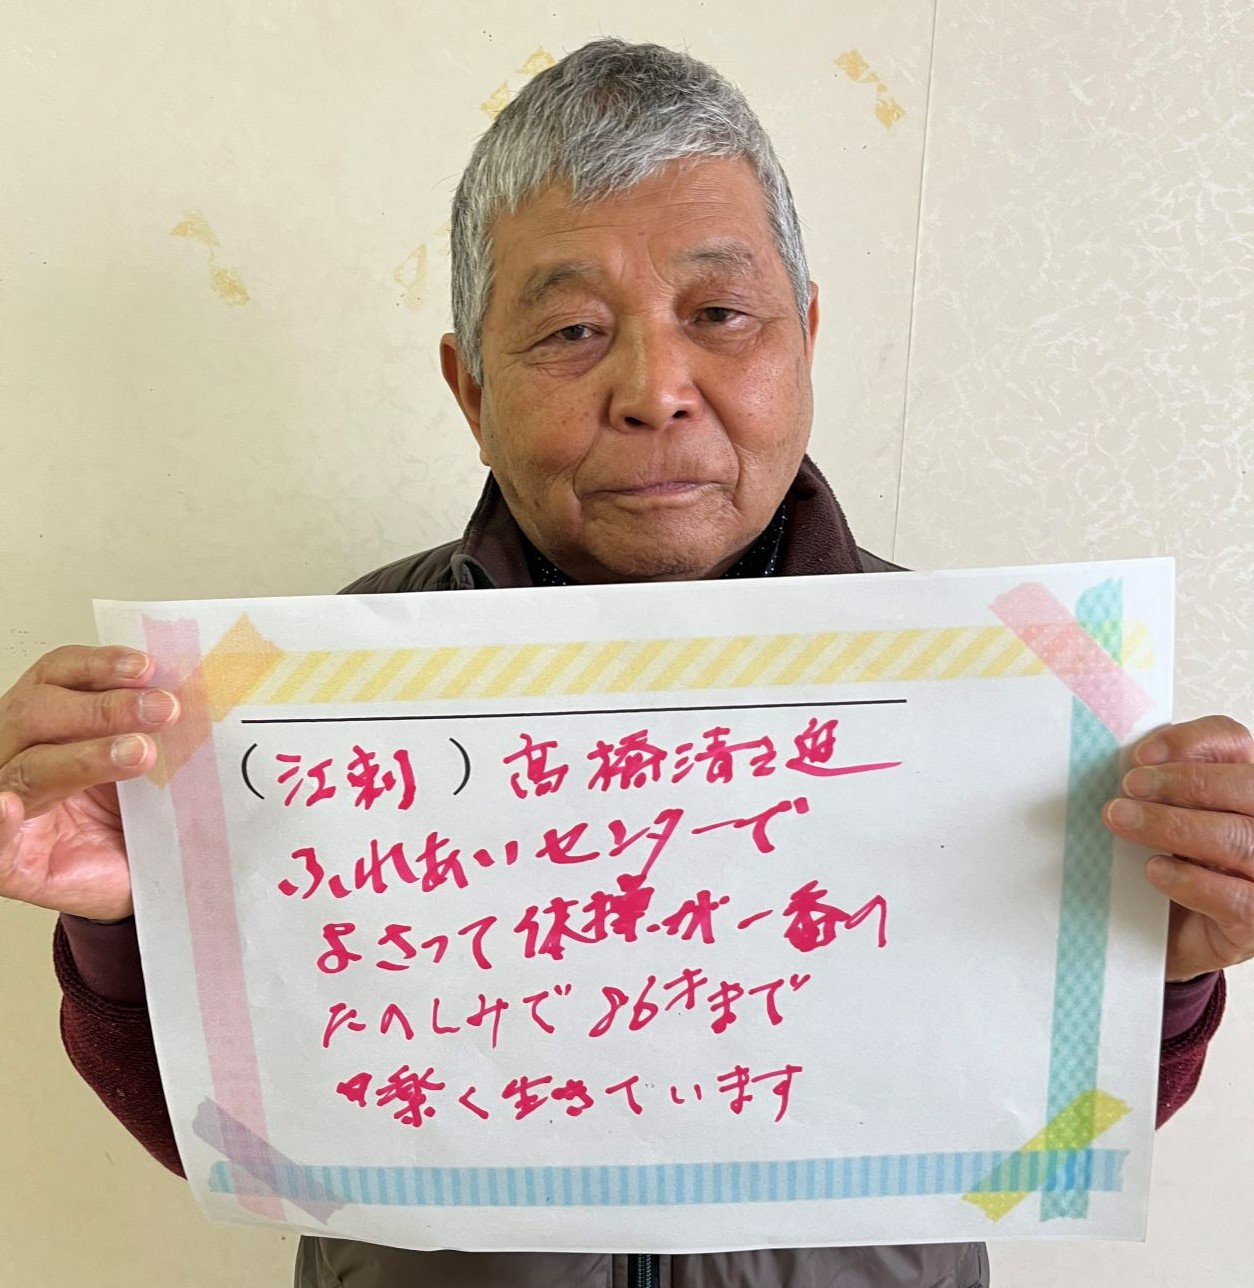 (江刺) 高橋清之進
ふれあいセンターで
よさって体操が一番の
たのしみで86才まで
楽く生きています